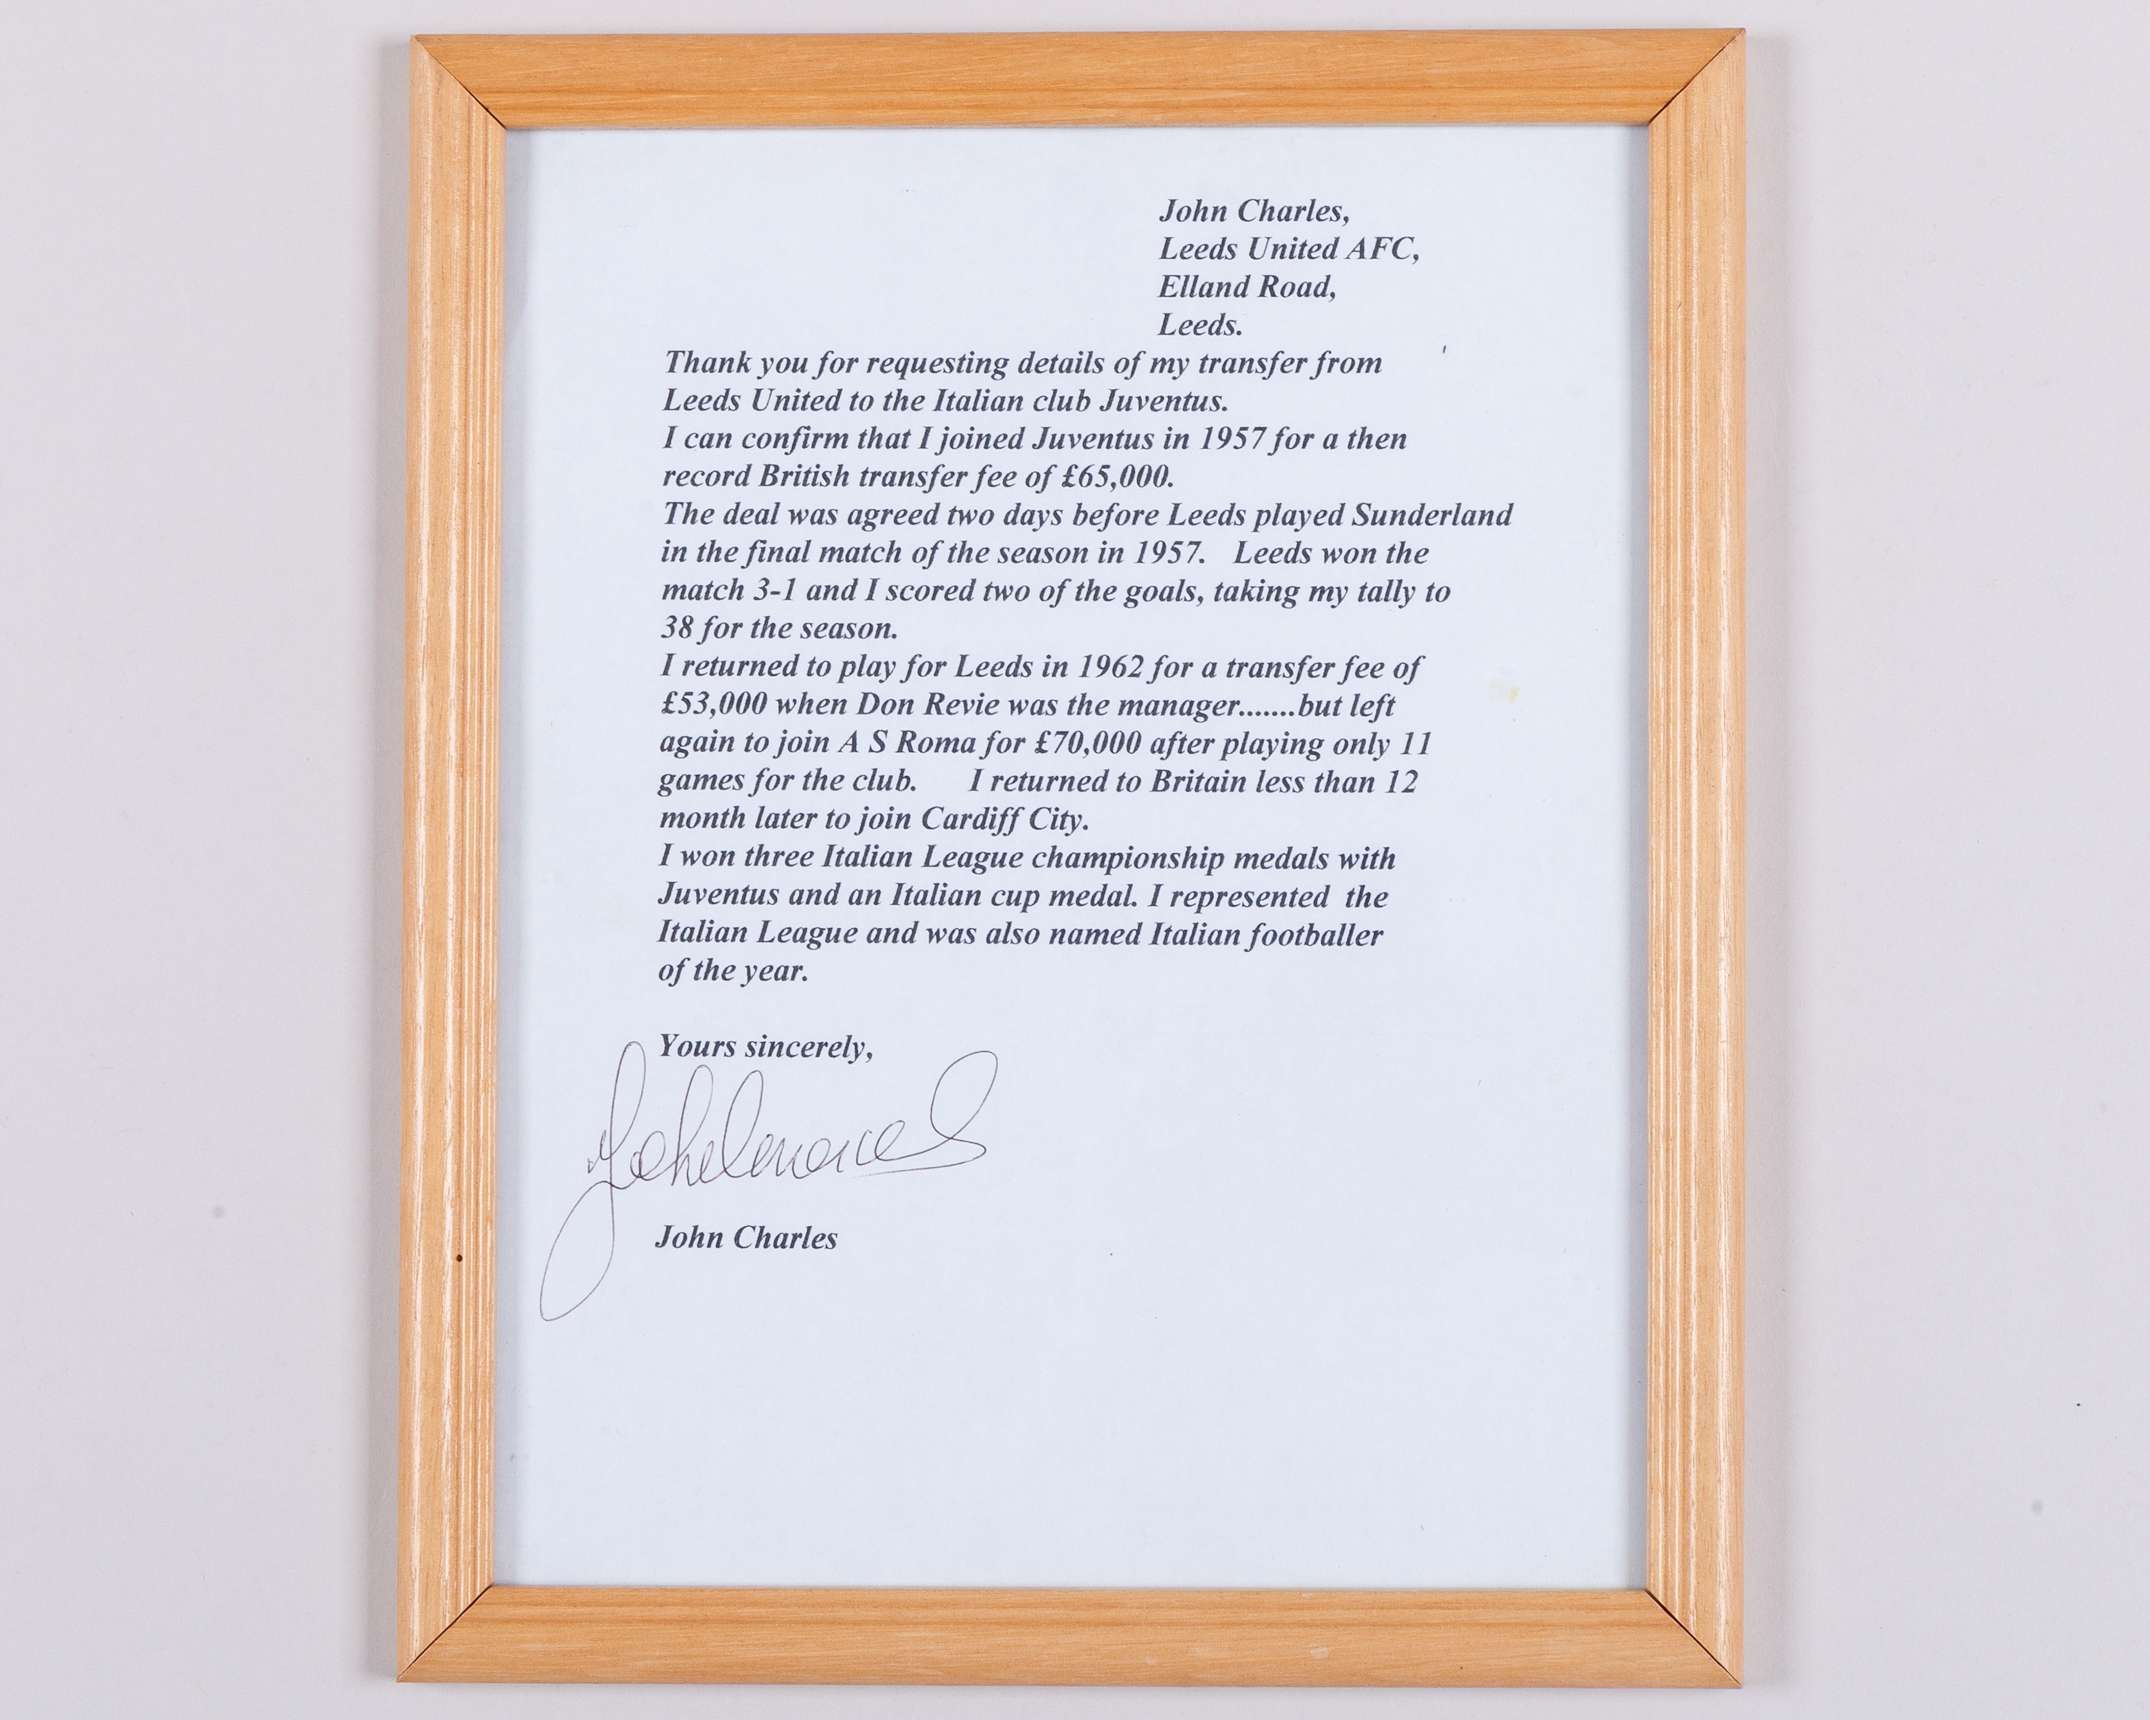 John Charles,
Leeds United AFC,
Elland Road,
Leeds.
Thank you for requesting details of my transfer from
Leeds United to the Italian club Juventus.
I can confirm that I joined Juventus in 1957 for a then
record British transfer fee of £65,000.
The deal was agreed two days before Leeds played Sunderland
in the final match of the season in 1957. Leeds won the
match 3-1 and I scored two of the goals, taking my tally to
38 for the season.
I returned to play for Leeds in 1962 for a transfer fee of
£53,000 when Don Revie was the manager.......but left
again to join A S Roma for £70,000 after playing only 11
games for the club. I returned to Britain less than 12
month later to join Cardiff City.
I won three Italian League championship medals with
Juventus and an Italian cup medal. I represented the
Italian League and was also named Italian footballer
of the year.
Yours sincerely,
John Charles
John Charles